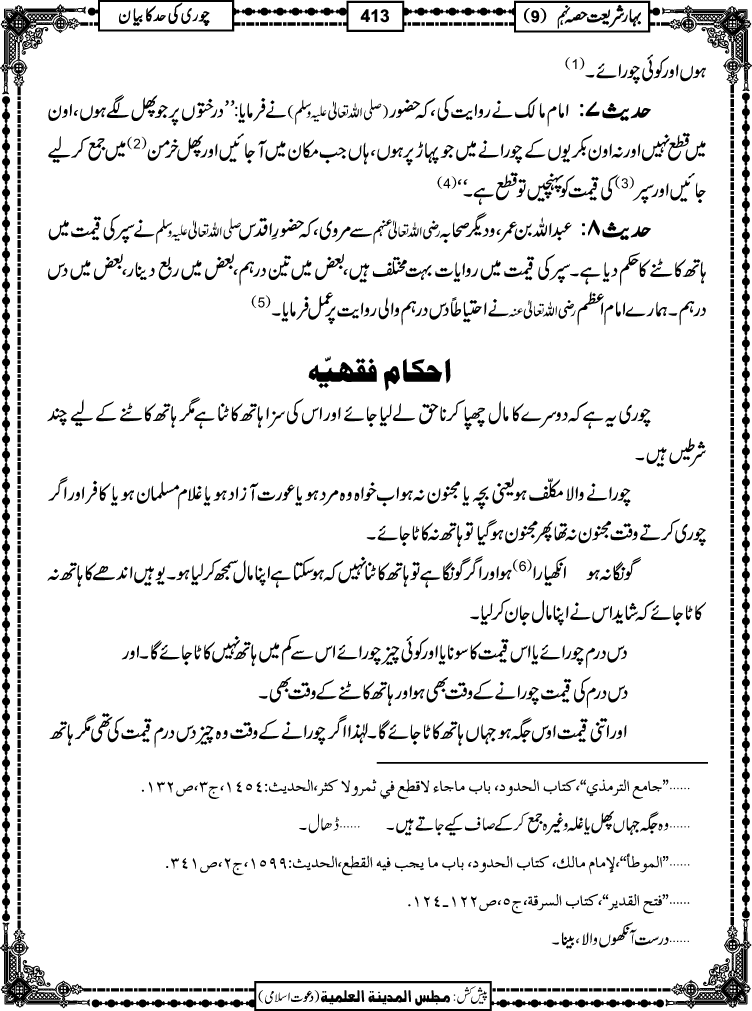 بہارِ شریعت حصہ نہم (9)
413
چوری کی حد کا بیان
ہوں اور کوئی چورائے۔(1)
حدیث ۷: امام مالک نے روایت کی، کہ حضور (صلی اللہ تعالیٰ علیہ وسلم) نے فرمایا: ''درختوں پر جو پھل لگے ہوں، اون
میں قطع نہیں اور نہ اون بکریوں کے چورانے میں جو پہاڑ پر ہوں، ہاں جب مکان میں آجائیں اور پھل خرمن(2) میں جمع کر لیے
جائیں اور سپر(3) کی قیمت کو پہنچیں تو قطع ہے۔''(4)
حدیث ۸: عبداللہ بن عمر، و دیگر صحابہ رضی اللہ تعالیٰ عنہم سے مروی، کہ حضورِ اقدس صلی اللہ تعالیٰ علیہ وسلم نے سپر کی قیمت میں
ہاتھ کاٹنے کا حکم دیا ہے۔ سپر کی قیمت میں روایات بہت مختلف ہیں، بعض میں تین درہم، بعض میں ربع دینار، بعض میں دس
درہم۔ ہمارے امام اعظم رضی اللہ تعالیٰ عنہ نے احتیاطاً دس درہم والی روایت پر عمل فرمایا۔(5)
احکام فقھیّہ
چوری یہ ہے کہ دوسرے کا مال چھپا کر ناحق لے لیا جائے اور اس کی سزا ہاتھ کاٹنا ہے مگر ہاتھ کاٹنے کے لیے چند
شرطیں ہیں۔
چورانے والا مکلّف ہو یعنی بچہ یا مجنون نہ ہو اب خواہ وہ مرد ہو یا عورت آزاد ہو یا غلام مسلمان ہو یا کافر اور اگر
چوری کرتے وقت مجنون نہ تھا پھر مجنون ہو گیا تو ہاتھ نہ کاٹا جائے۔
گونگا نہ ہو انکھیارا(6) ہو اور اگر گونگا ہے تو ہاتھ کاٹنا نہیں کہ ہوسکتا ہے اپنا مال سمجھ کر لیا ہو۔ یوہیں اندھے کا ہاتھ نہ
کاٹا جائے کہ شاید اس نے اپنا مال جان کر لیا۔
دس درم چورائے یا اس قیمت کا سونا یا اور کوئی چیز چورائے اس سے کم میں ہاتھ نہیں کاٹا جائے گا۔ اور
دس درم کی قیمت چورانے کے وقت بھی ہو اور ہاتھ کاٹنے کے وقت بھی۔
اور اتنی قیمت اوس جگہ ہو جہاں ہاتھ کاٹا جائے گا۔ لہٰذا اگر چورانے کے وقت وہ چیز دس درم قیمت کی تھی مگر ہاتھ
......''جامع الترمذي''، كتاب الحدود، باب ماجاء لاقطع في ثمر ولا كثر، الحديث: ١٤٥٤، ج٣، ص١٣٢.
......وہ جگہ جہاں پھل یا غلہ وغیرہ جمع کرکے صاف کیے جاتے ہیں۔ ......ڈھال۔
......''الموطأ''، لإمام مالك، كتاب الحدود، باب ما يجب فيه القطع، الحديث: ١٥٩٩، ج٢، ص٣٤١.
......''فتح القدير''، كتاب السرقة، ج٥، ص١٢٢-١٢٤.
......درست آنکھوں والا، بینا۔
پیش کش: مجلس المدينة العلمية (دعوتِ اسلامی)